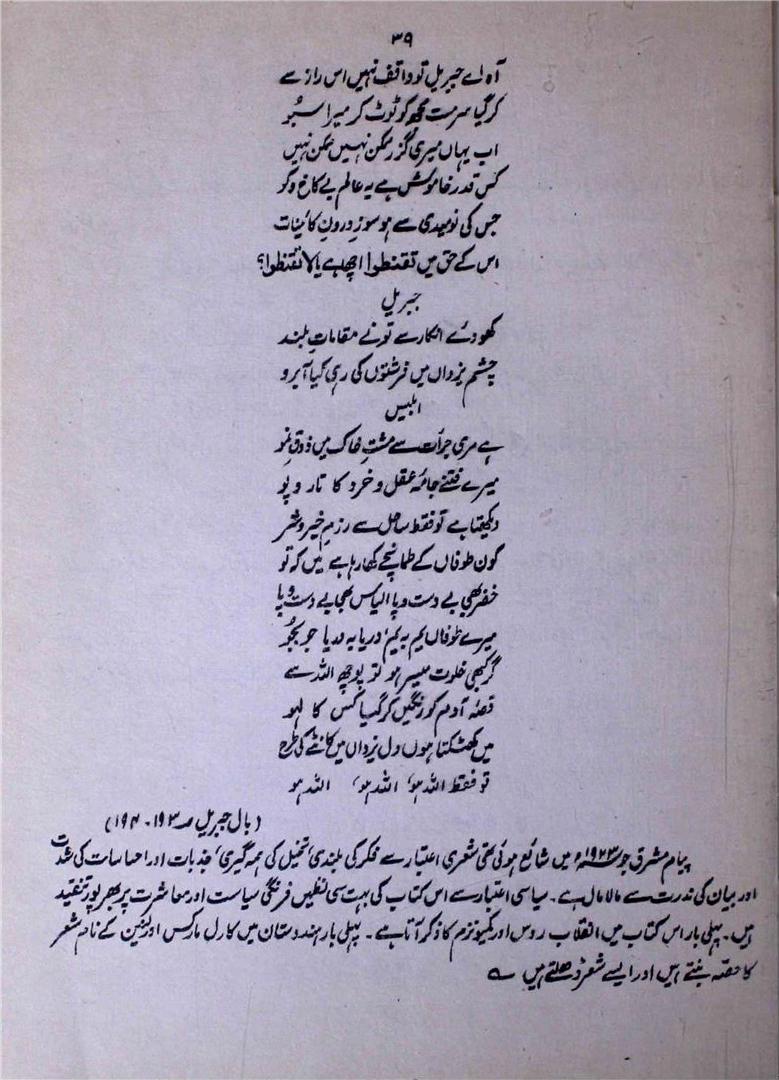 ۳۹
آہ اے جبریل تو واقف نہیں اس راز سے
کر گیا سرمست مجھ کو ٹوٹ کر میرا سبُو
اب یہاں میری گزر ممکن نہیں ممکن نہیں
کس قدر خاموش ہے یہ عالم بے کاخ و کو
جس کی نومیدی سے ہو سوزِ درونِ کائنات
اس کے حق میں تقنطوا اچھا ہے یا لا تقنطوا؟
جبریل
کھو دئے انکار سے تو نے مقاماتِ بلند
چشمِ یزداں میں فرشتوں کی رہی کیا آبرو
ابلیس
ہے مری جرأت سے مشتِ خاک میں ذوقِ نمو
میرے فتنے جامۂ عقل و خرد کا تار و پو
دیکھتا ہے تو فقط ساحل سے رزمِ خیر و شر
کون طوفاں کے طمانچے کھا رہا ہے میں کہ تو
خضر بھی بے دست و پا الیاس بھی بے دست و پا
میرے طوفاں یم بہ یم، دریا بہ دریا جو بجُو
گر کبھی خلوت میسر ہو تو پوچھ اللہ سے
قصۂ آدم کو رنگیں کر گیا کس کا لہو
میں کھٹکتا ہوں دل یزداں میں کانٹے کی طرح
تو فقط اللہ ہو، اللہ ہو، اللہ ہو
(بال جبریل صہ ۱۹۳-۱۹۴)
پیام مشرق جو ۱۹۲۳ء میں شائع ہوئی تھی شعری اعتبار سے فکر کی بلندی، تخیل کی ہمہ گیری، جذبات اور احساسات کی شدت
اور بیان کی ندرت سے مالامال ہے۔ سیاسی اعتبار سے اس کتاب کی بہت سی نظمیں فرنگی سیاست اور معاشرت پر بھرپور تنقید
ہیں۔ پہلی بار اس کتاب میں انقلاب روس اور کمیونزم کا ذکر آتا ہے۔ پہلی بار ہندوستان میں کارل مارکس اور لینن کے نام شعر
کا حصہ بنتے ہیں اور ایسے شعر ڈھلتے ہیں ؎